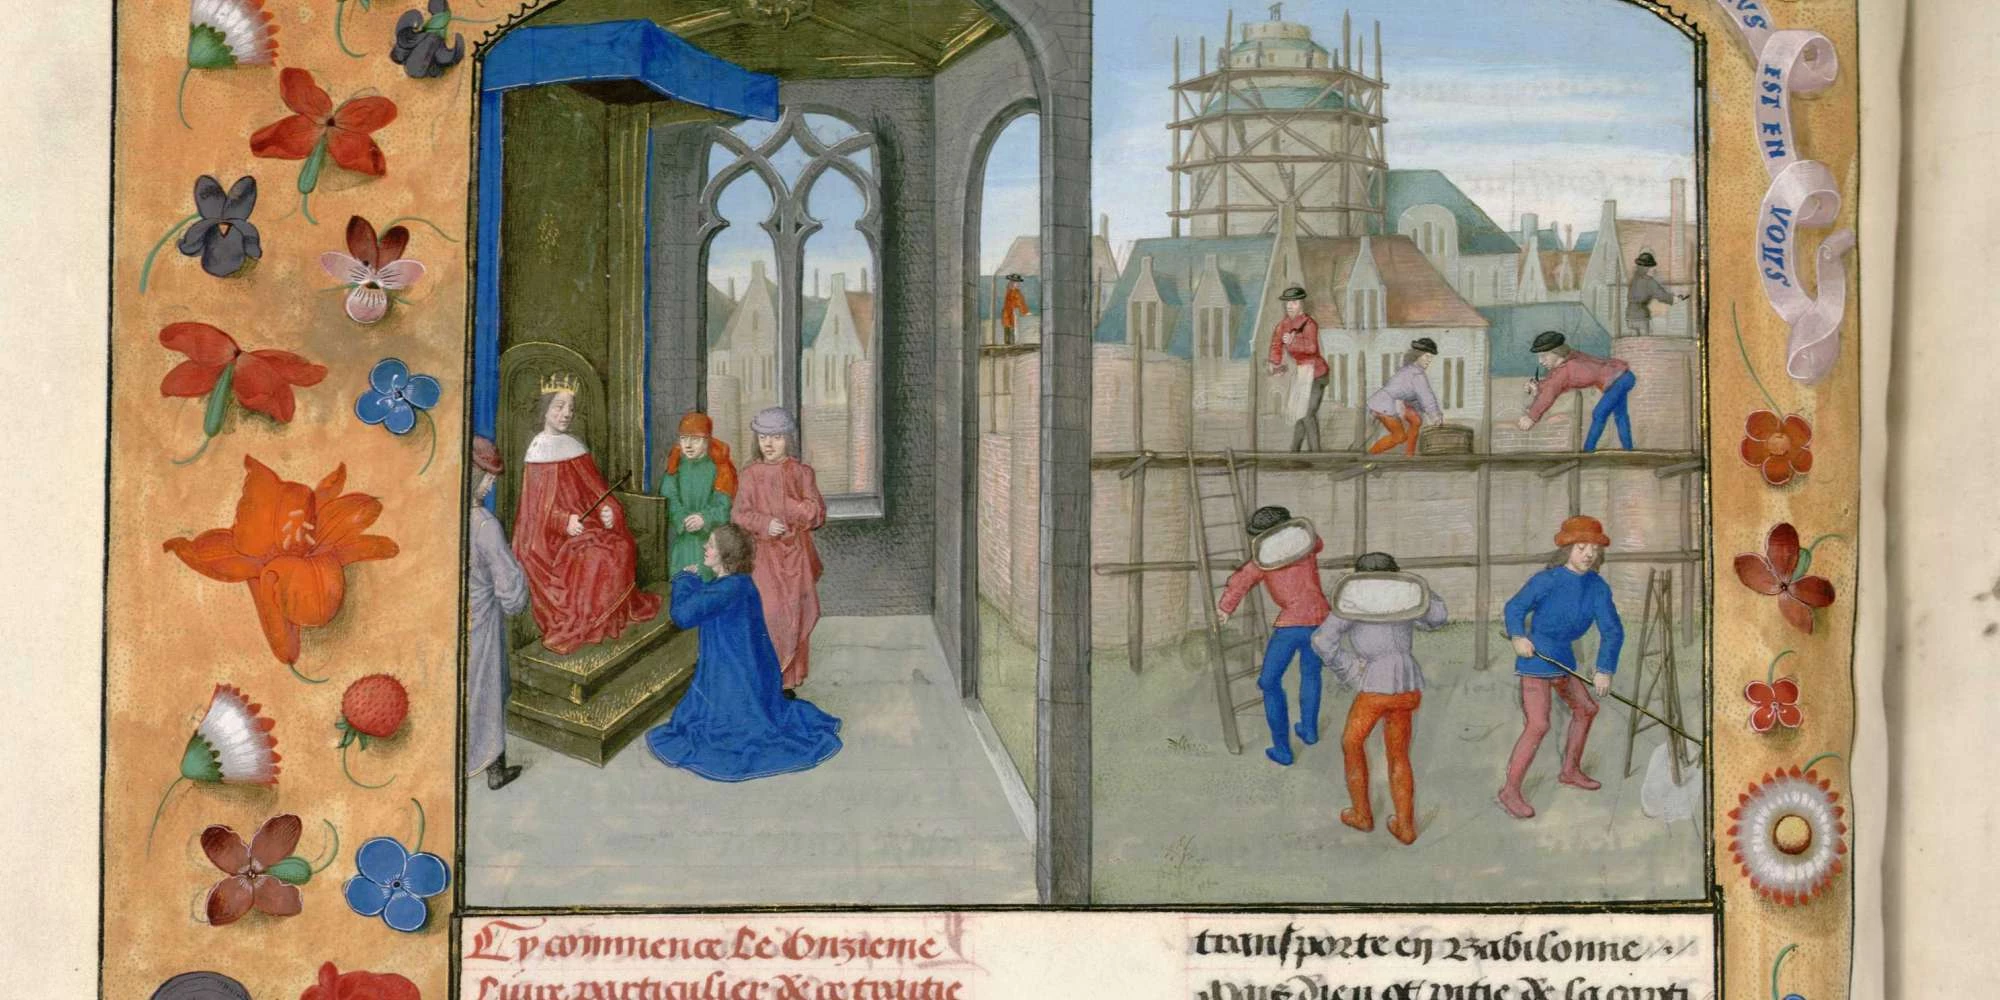 VS
EST EN
VOUS
Cy commence le Onzieme
Livre particulier de ce traitie
transporte en Babilonne
Mais dieu ot pitie de sa capti